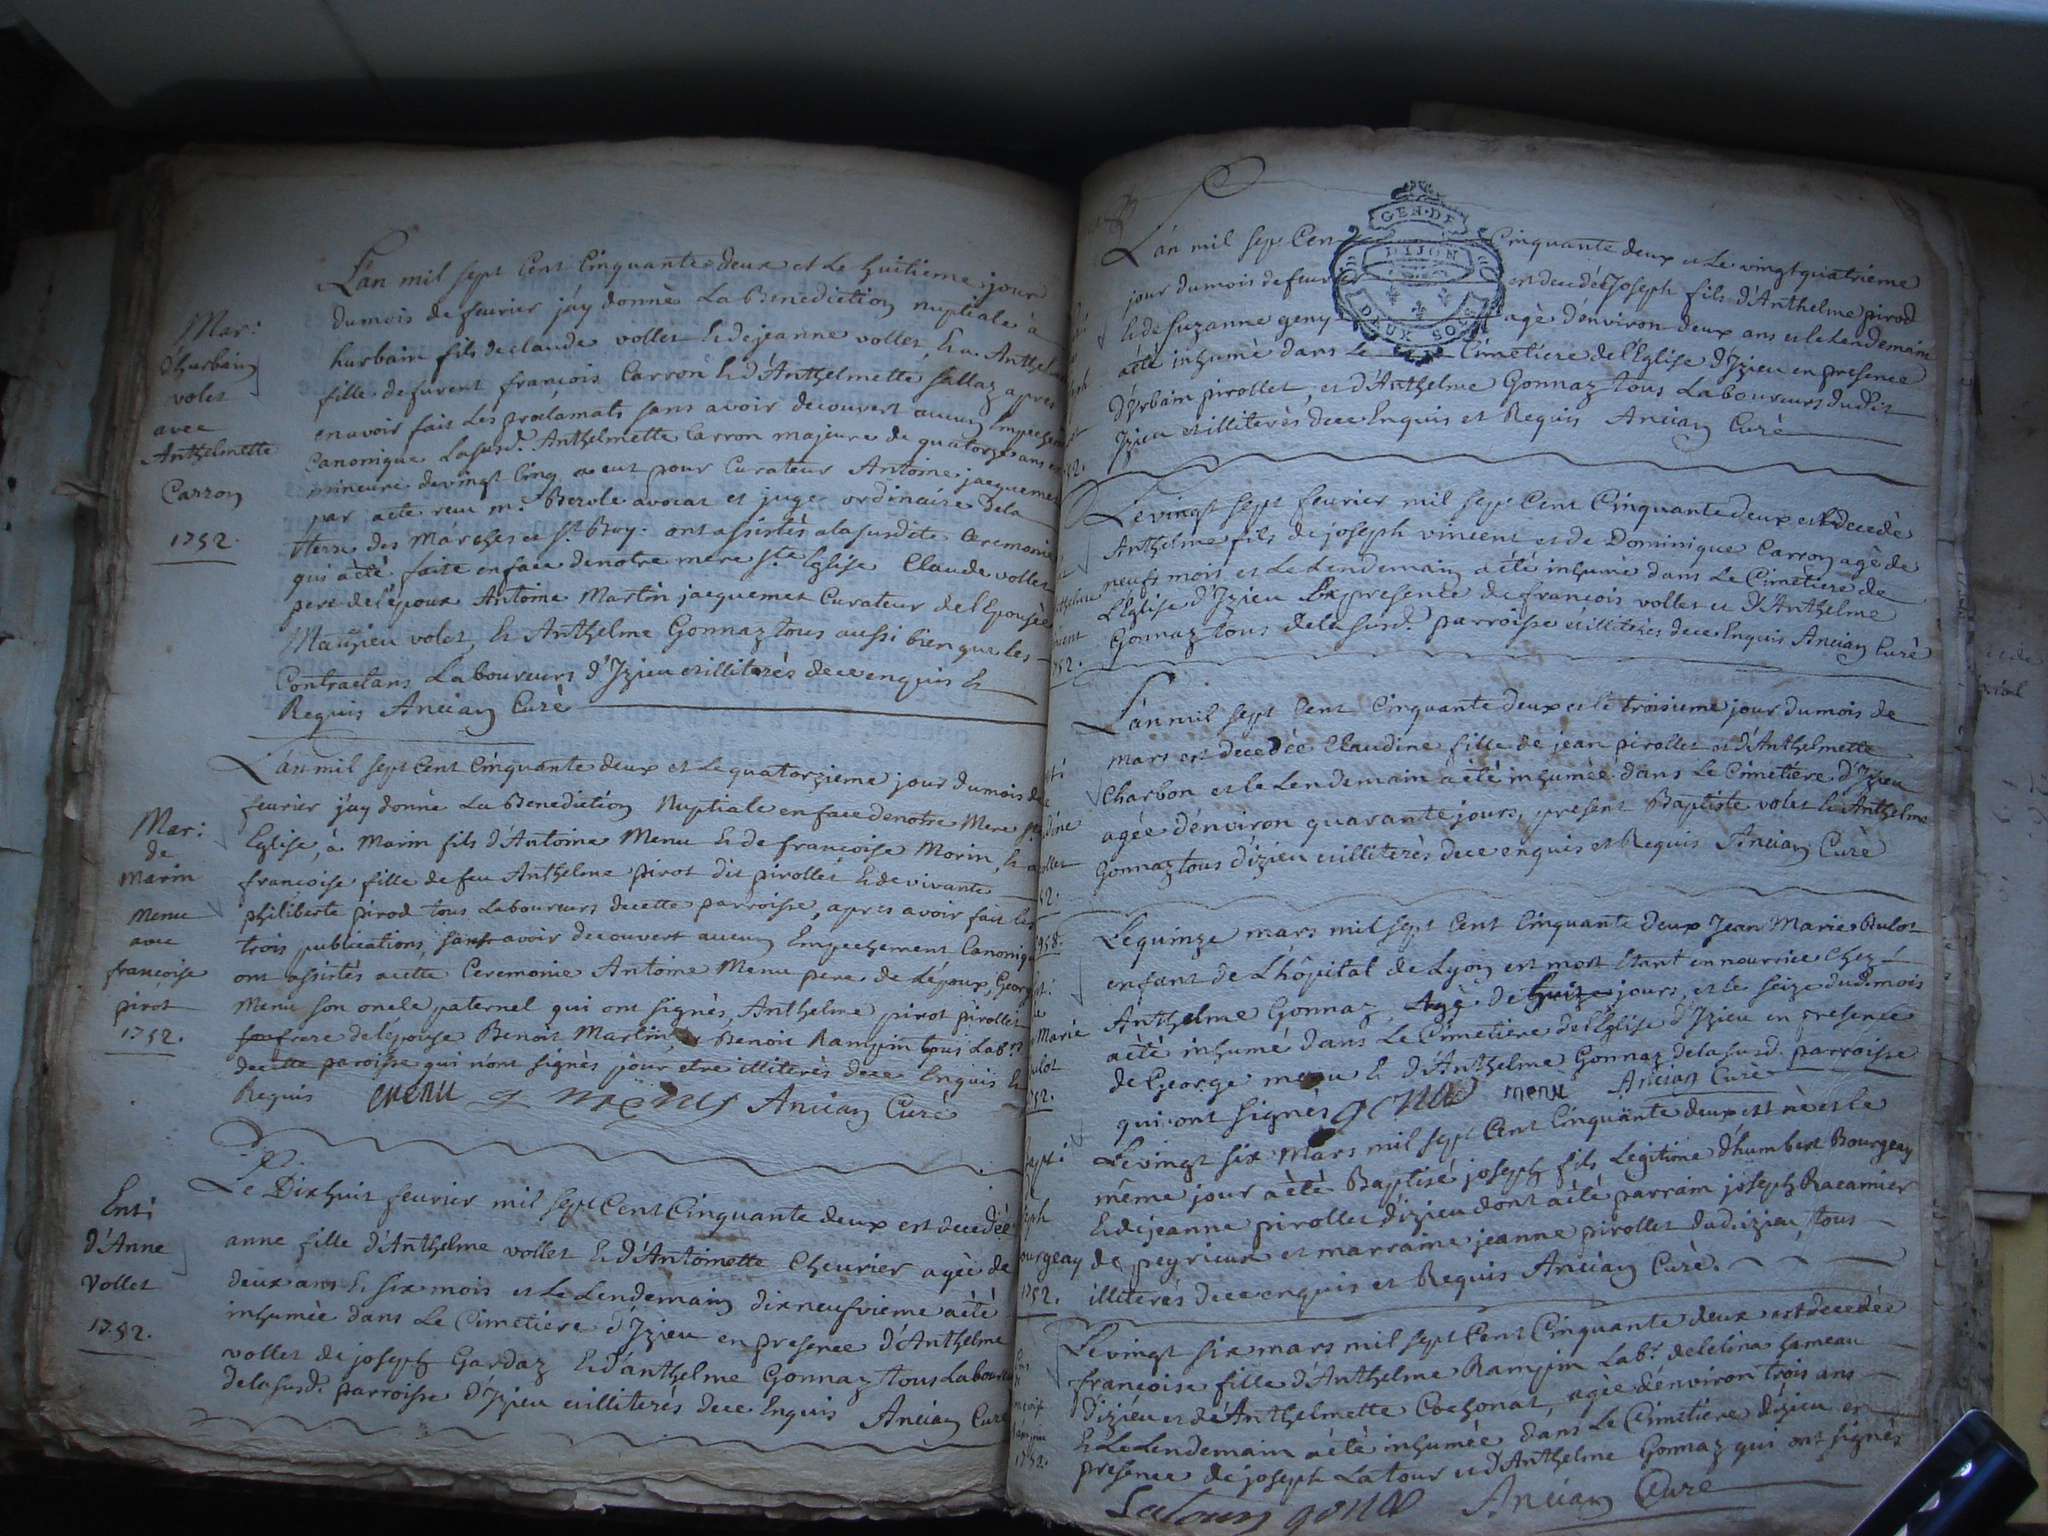 L'an mil sept Cent Cinquante deux et Le huitieme jour
dumois de feurier j'ay donné La Benediction nuptiale à
hurbain fils de claude vollet & de jeanne vollet, & a Anthelm
fille defuvent françois Carron & d'Anthelmette sallaz apres
enavoir fait Les proclamats sans avoir decouvert aucun Empechem
Canonique Lasusd. Anthelmette Carron majeure de quatorze ans et
mineure devingt Cinq a eut pour Curateur Antoine jacquemet
par acte reçu me. Berole avocat et juge ordinaire dela
terre des Marches et St Boy. ont assistés alasusdite Ceremonie
qui a été faite enface denotre mere Ste Eglise Claude vollet
pere del'epoux Antoine Martin jacquemet Curateur de l'Epousée
Mathieu volet, & Anthelme Gonnaz tous aussi bien que les
Contractans Laboureurs d'Izieu et illiterés dece enquis &
Requis Ancian Curé
Mar:
d'hurbain
volet
avec
Anthelmette
Carron
1752.
L'an mil sept Cent Cinquante deux et Le quatorzieme jour dumois de
feurier j'ay donné La Benediction Nuptiale enface denotre Mere Ste
Eglise, à Marin fils d'Antoine Menu & de françoise Morin, & a
françoise fille de feu Anthelme pirot dit pirollet & de vivante
philiberte pirod tous Laboureurs decette parroisse, apres avoir fait les
trois publications, sans avoir decouvert aucun Empechement Canoniq
ont assistés acette Ceremonie Antoine Menu pere de L'epoux, Georg
Menu son oncle paternel qui ont signés, Anthelme pirot pirollet
frere del'epouse Benoit Martin, & Benoit Rampin tous Labrs
decette paroisse qui n'ont signés pour etre illiterés dece Enquis &
Requis menu g menu Ancian Curé
Mar:
de
Marin
Menu
avec
françoise
pirot
1752.
Le Dixhuit feurier mil sept Cent Cinquante deux est decedée
anne fille d'Anthelme vollet & d'Antoinette Cheurier agée de
deux ans & six mois et Le Lendemain dixneufvieme a été
inhumée dans Le Cimetiere d'Izieu en presence d'Anthelme
vollet de joseph Gardaz & d'anthelme Gonnaz tous Laboure
delasusd. parroisse d'Izieu et illiterés dece Enquis Ancian Curé
Ent:
d'Anne
Vollet
1752.
GEN·DE
DIJON
DEUX SOLS
L'an mil sept Cent Cinquante deux et Le vingtquatrieme
jour dumois de feurier est decedé Joseph fils d'Anthelme pirod
& de Suzanne geny agé d'environ deux ans et le Lendemain
a été inhumé dans Le Cimetiere de l'Eglise d'Izieu en presence
d'Urbain pirollet, et d'Anthelme Gonnaz tous Laboureurs dudit
Izieu et illiterés dece Enquis et Requis Ancian Curé
Le vingt sept feurier mil sept Cent Cinquante deux est decedé
Anthelme fils de joseph vincent et de Dominique Carron agé de
neufs mois et Le Lendemain a été inhumé dans Le Cimetiere de
L'Eglise d'Izieu En presence de françois vollet et d'Anthelme
Gonnaz tous delasusd. parroisse et illiterés dece Enquis Ancian Curé
L'an mil sept Cent Cinquante deux et le troisieme jour dumois de
mars est decedée Claudine fille de jean pirollet et d'Anthelmette
Charbon et le Lendemain a été inhumée dans Le Cimetiere d'Izieu
agée d'environ quarante jours, present Baptiste volet & Anthelme
Gonnaz tous d'izieu et illiterés dece enquis et Requis Ancian Curé
Le quinze mars mil sept Cent Cinquante deux Jean Marie Bulot
enfant de L'hôpital de Lyon est mort Etant en nourrice Chez
Anthelme Gonnaz, Agé de jours, et le seize dudt mois
a été inhumé dans Le Cimetiere de l'Eglise d'Izieu en presence
de George menu & d'Anthelme Gonnaz delasusd. parroisse
qui ont signés menu Ancian Curé
Marie
ulot
Le vingt six mars mil sept Cent Cinquante deux est né et le
même jour a été Baptisé joseph fils Legitime d'humbert Bourgeay
& de jeanne pirollet d'izieu dont a été parrain joseph Racamier
de peyrieux et marraine jeanne pirollet dud. izieu, tous
illiterés dece enquis et Requis Ancian Curé.
eph
ourgeay
1752.
Le vingt six mars mil sept Cent Cinquante deux est decedée
françoise fille d'Anthelme Rampin Labr. hameau
d'izieu et d'Anthelmette Cochonat, agée d'environ trois ans
& Le Lendemain a été inhumée dans Le Cimetiere d'izieu en
presence de joseph Latour et d'Anthelme Gonnaz qui ont signés
Latour Ancian Curé